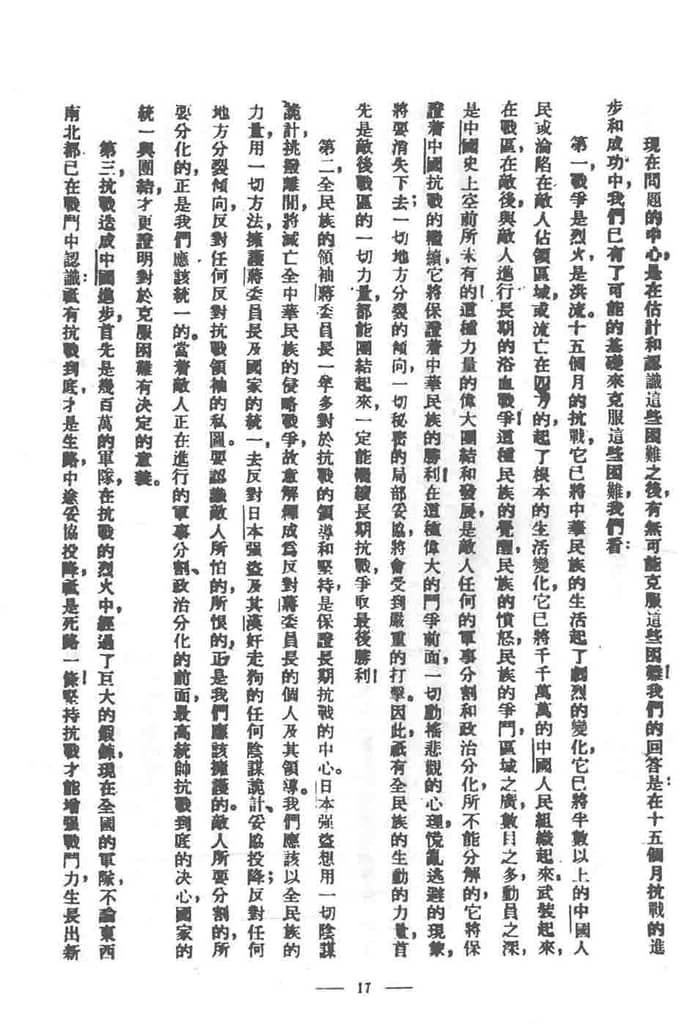 現在問題的中心，是在估計和認識這些困難之後，有無可能克服這些困難！我們的回答是：在十五個月抗戰的進
步和成功中，我們已有了可能的基礎，來克服這些困難，我們看：
第一，戰爭是烈火，是洪流，十五個月的抗戰，它已將中華民族的生活起了劇烈的變化，它已將半數以上的中國人
民或淪陷在敵人佔領區域，或流亡在四方的，起了根本的生活變化，它已將千千萬萬的中國人民組織起來，武裝起來，
在戰區，在敵後，與敵人進行長期的浴血戰爭！這種民族的覺醒，民族的憤怒，民族的爭鬥，區域之廣，數目之多，動員之深，
是中國史上空前所未有的！這種力量的偉大團結和發展，是敵人任何的軍事分割和政治分化，所不能分解的，它將保
證着中國抗戰的繼續，它將保證着中華民族的勝利！在這種偉大的鬥爭前面，一切動搖悲觀的心理，慌亂逃避的現象，
將要消失下去；一切地方分裂的傾向，一切秘密的局部妥協，將會受到嚴重的打擊。因此，祇有全民族的生動的力量，首
先是敵後戰區的一切力量，都能團結起來，一定能繼續長期抗戰，爭取最後勝利！
第二，全民族的領袖蔣委員長一年多對於抗戰的領導和堅持，是保證長期抗戰的中心。日本强盜想用一切陰謀
詭計，挑撥離間，將滅亡全中華民族的侵略戰爭，故意解釋成爲反對蔣委員長的個人及其領導。我們應該以全民族的
力量，用一切方法，擁護蔣委員長及國家的統一，去反對日本强盜及其漢奸走狗的任何陰謀詭計、妥協投降，反對任何
地方分裂傾向，反對任何反對抗戰領袖的私圖。要認識敵人所怕的，所恨的，正是我們應該擁護的，敵人所要分割的，所
要分化的，正是我們應該統一的。當着敵人正在進行的軍事分割、政治分化的前面，最高統帥抗戰到底的决心，國家的
統一與團結，才更證明對於克服困難有决定的意義。
第三，抗戰造成中國進步，首先是幾百萬的軍隊，在抗戰的烈火中，經過了巨大的鍛鍊，現在全國的軍隊，不論東西
南北，都已在戰鬥中認識：祇有抗戰到底，才是生路，中途妥協投降，祇是死路一條！堅持抗戰，才能增强戰鬥力，生長出新
— 17 —